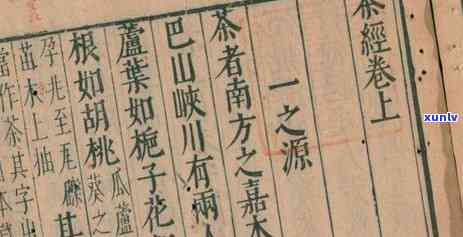 茶經卷上
一之源
茶者南方之嘉木
巴山峽川有兩人
蘆葉如梔子花
根如胡桃瓜蘆
葵之
孕兆至瓦礫
苗木上抽
其
當作茶其字出
xunlv